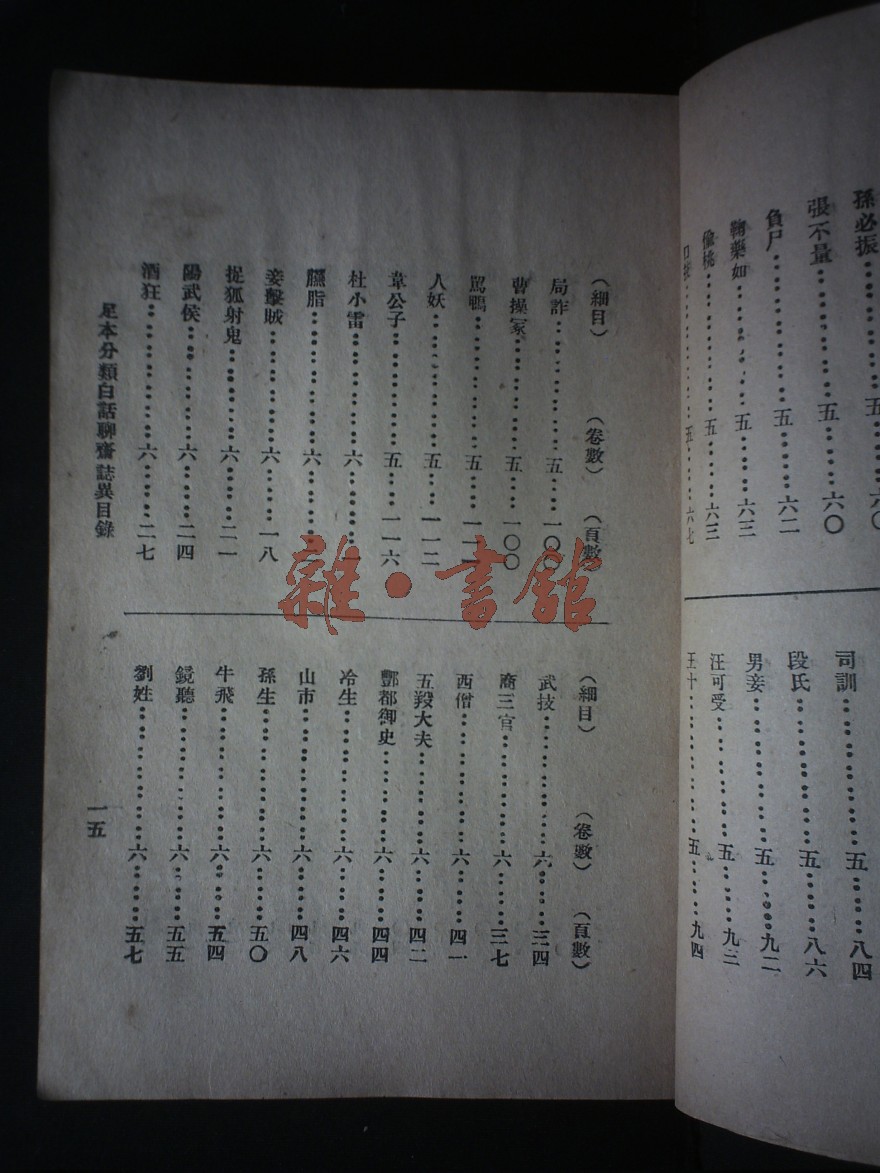 孫必振……五……六〇
張不量……五……六〇
負尸……五……六二
鞠藥如……五……六三
偷桃……五……六三
五……六七
司訓……五……八四
段氏……五……八六
男妾……五……九二
汪可受……五……九三
王十……五……九四
（細目）（卷數）（頁數）
局詐……五……一〇〇
曹操冢……五……一〇〇
罵鴨……五……一一一
人妖……五……一一二
韋公子……五……一一六
杜小雷……六……一
臙脂……六……
妾擊賊……六……一八
捉狐射鬼……六……二一
陽武侯……六……二四
酒狂……六……二七
（細目）（卷數）（頁數）
武技……六……三四
商三官……六……三七
西僧……六……四一
五羖大夫……六……四二
酆都御史……六……四四
冷生……六……四六
山市……六……四八
孫生……六……五〇
牛飛……六……五四
鏡聽……六……五五
劉姓……六……五七
足本分類白話聊齋誌異目錄
一五
雜·書館